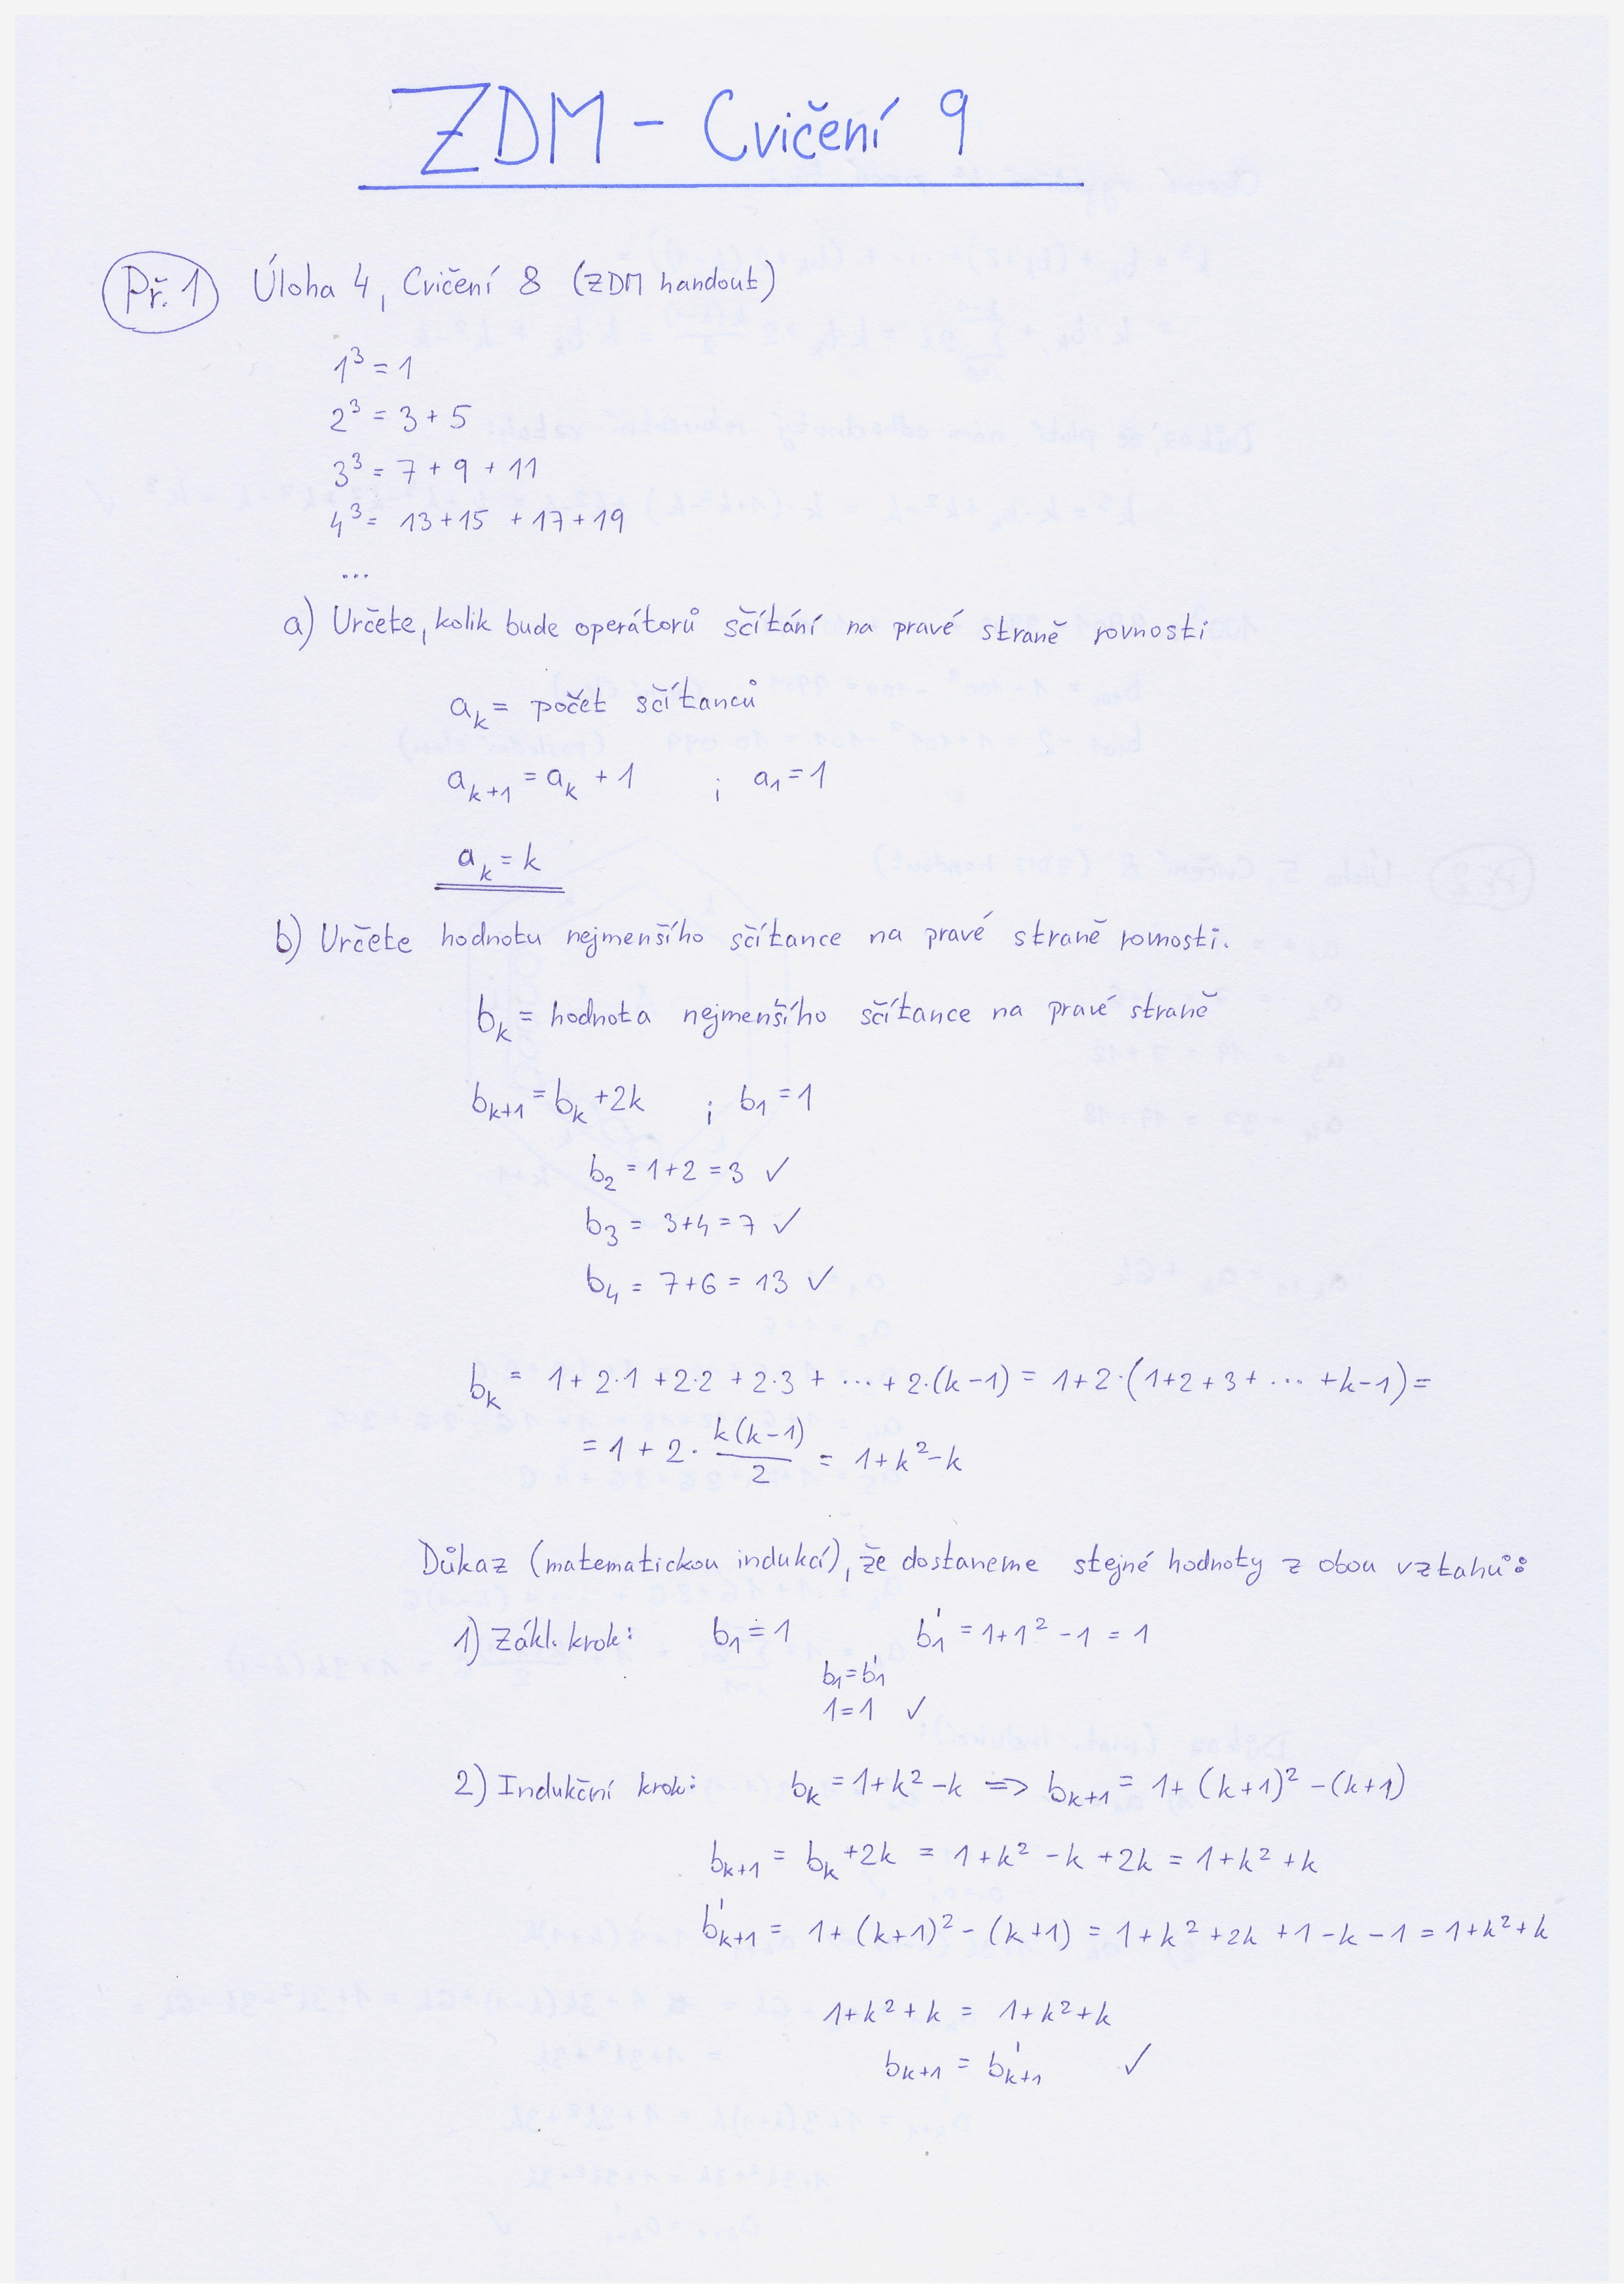 ZDM - Cvičení 9
Př. 1 Úloha 4, Cvičení 8 (ZDM handout)
1³ = 1
2³ = 3 + 5
3³ = 7 + 9 + 11
4³ = 13 + 15 + 17 + 19
...
a) Určete, kolik bude operátorů sčítání na pravé straně rovnosti
a_k = počet sčítanců
a_{k+1} = a_k + 1 ; a_1 = 1
a_k = k
b) Určete hodnotu nejmenšího sčítance na pravé straně rovnosti.
b_k = hodnota nejmenšího sčítance na pravé straně
b_{k+1} = b_k + 2k ; b_1 = 1
b_2 = 1 + 2 = 3 ✓
b_3 = 3 + 4 = 7 ✓
b_4 = 7 + 6 = 13 ✓
b_k = 1 + 2·1 + 2·2 + 2·3 + ... + 2·(k-1) = 1 + 2·(1 + 2 + 3 + ... + k-1) =
= 1 + 2 · \frac{k(k-1)}{2} = 1 + k² - k
Důkaz (matematickou indukcí), že dostaneme stejné hodnoty z obou vztahů:
1) Zákl. krok: b_1 = 1 b'_1 = 1 + 1² - 1 = 1
b_1 = b'_1
1 = 1 ✓
2) Indukční krok: b_k = 1 + k² - k => b_{k+1} = 1 + (k+1)² - (k+1)
b_{k+1} = b_k + 2k = 1 + k² - k + 2k = 1 + k² + k
b'_{k+1} = 1 + (k+1)² - (k+1) = 1 + k² + 2k + 1 - k - 1 = 1 + k² + k
1 + k² + k = 1 + k² + k
b_{k+1} = b'_{k+1} ✓